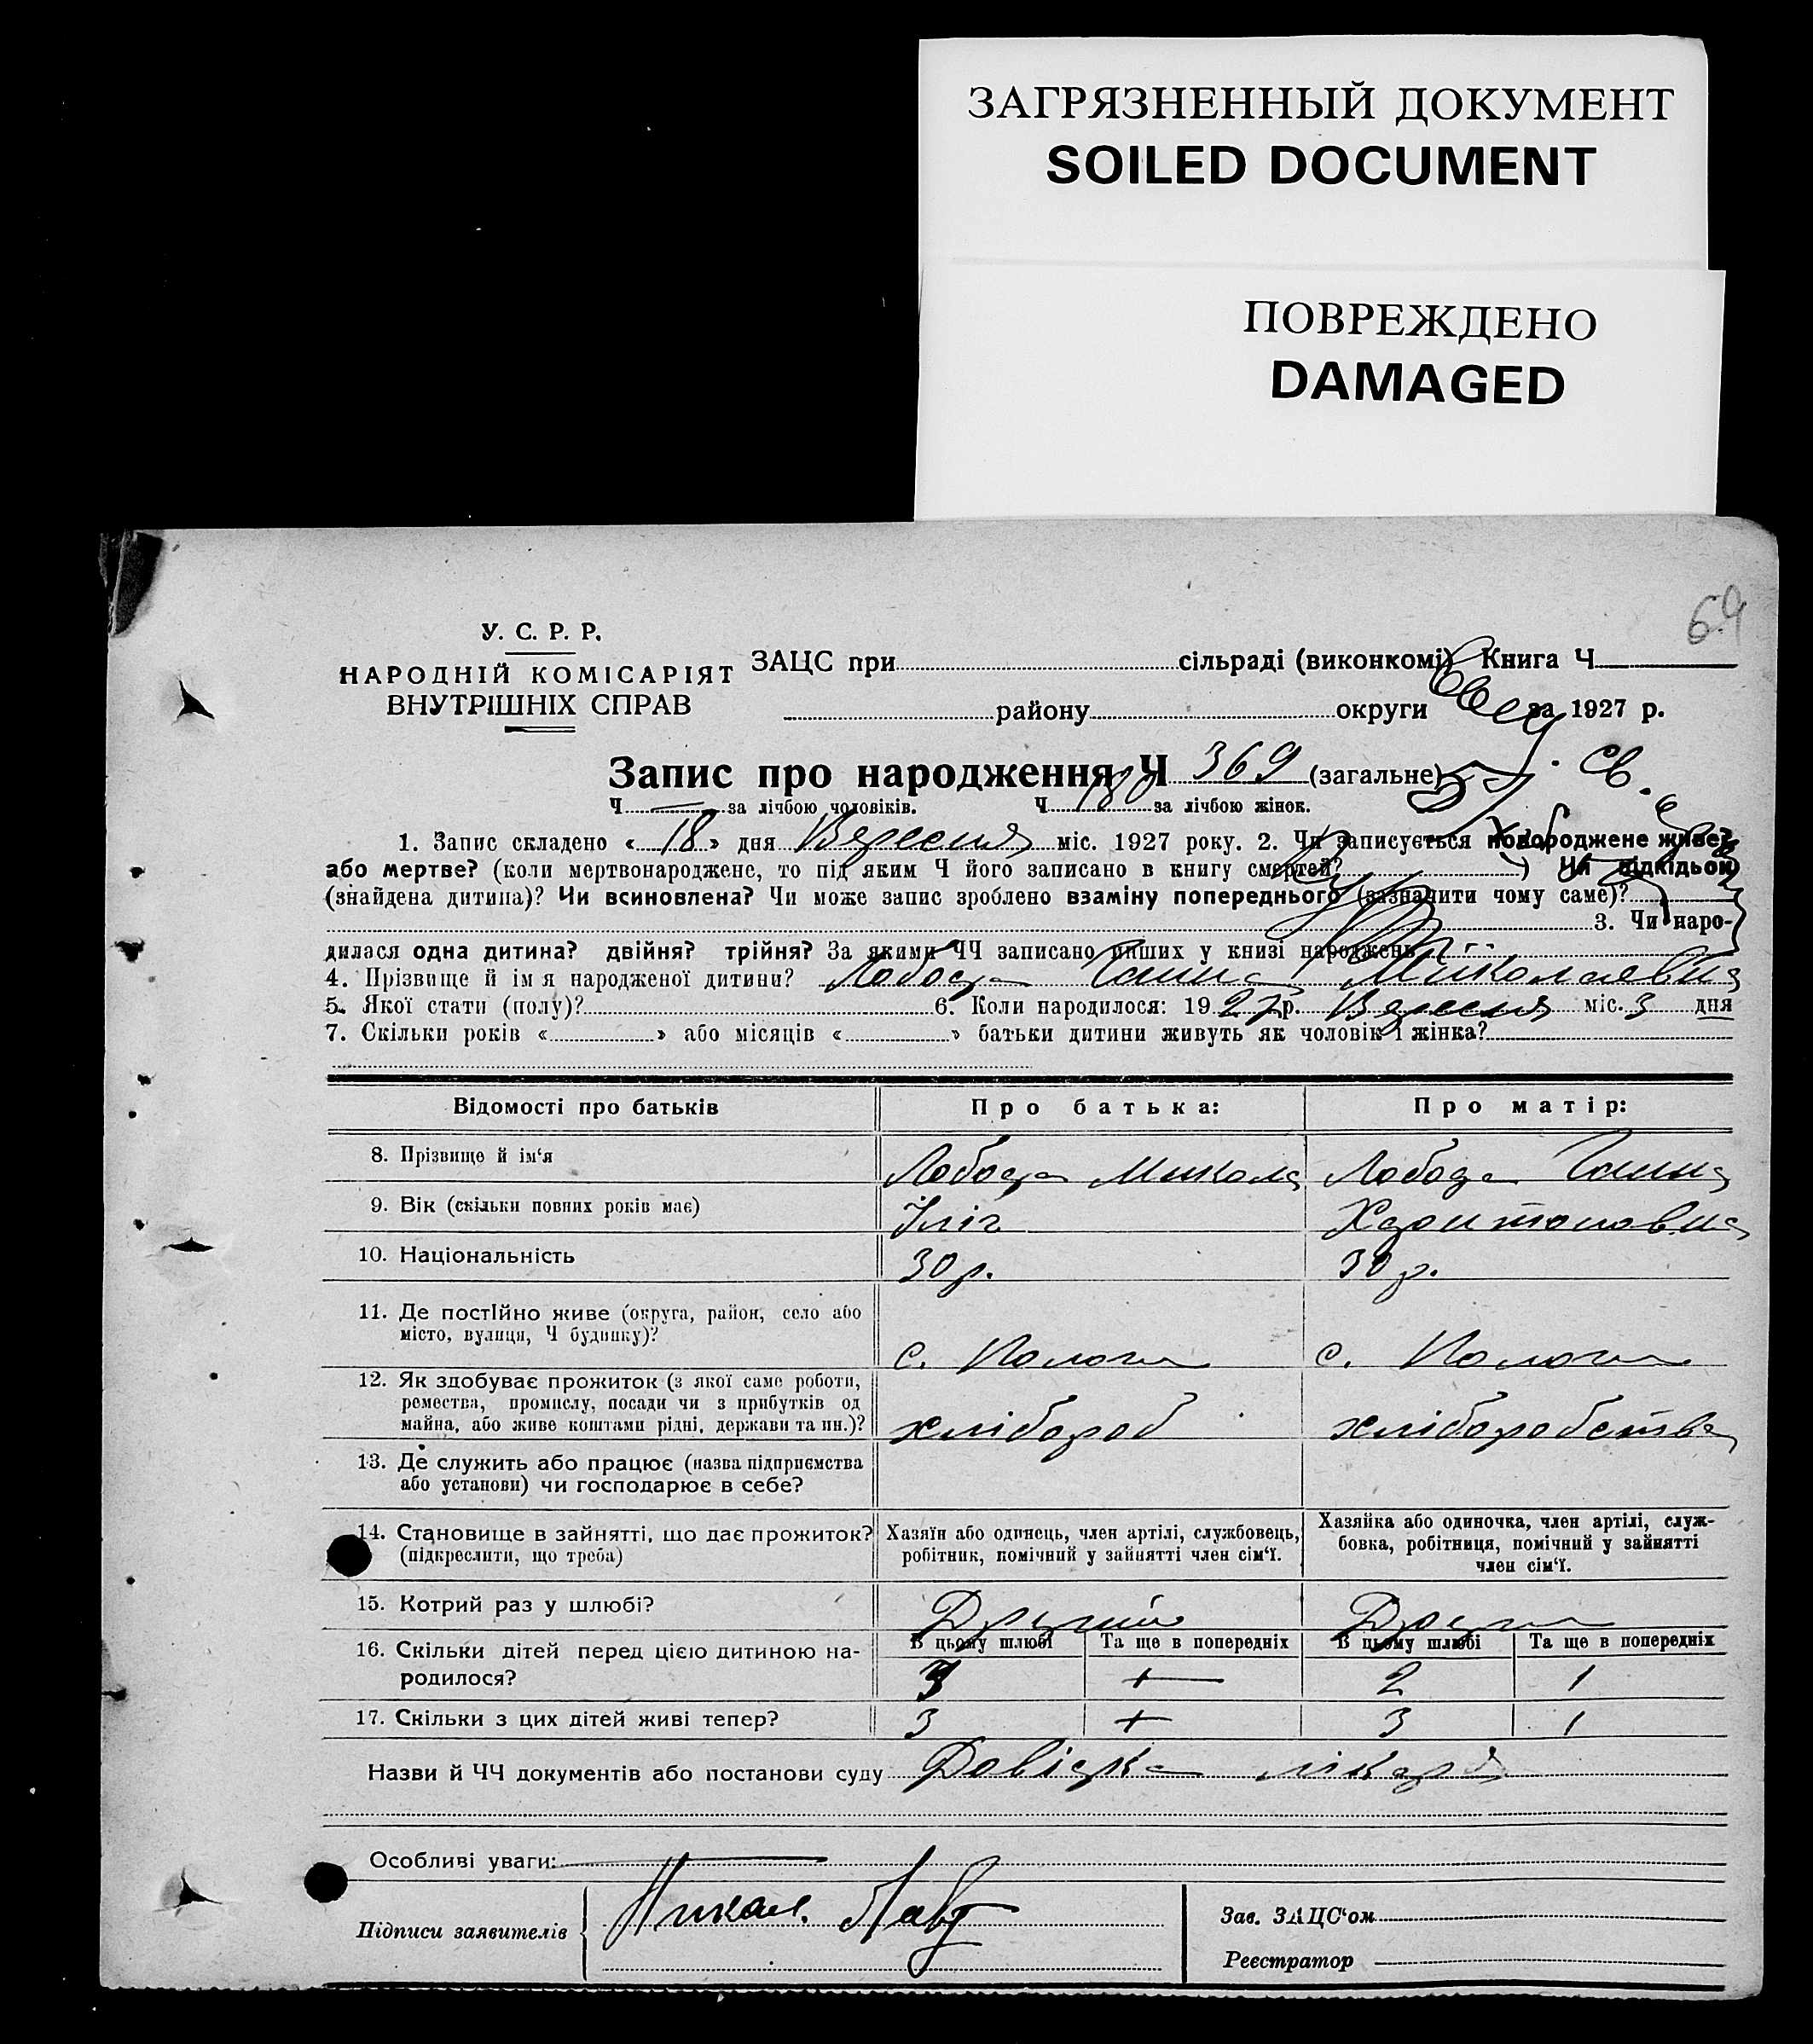 ЗАГРЯЗНЕННЫЙ ДОКУМЕНТ
SOILED DOCUMENT
ПОВРЕЖДЕНО
DAMAGED
69
У. С. Р. Р.
НАРОДНІЙ КОМІСАРІЯТ
ВНУТРІШНІХ СПРАВ
ЗАЦС при сільраді (виконкомі) Книга Ч
району округи за 1927 р.
Запис про народження Ч 369 (загальне)
Ч — за лічбою чоловіків. Ч 180 за лічбою жінок.
1. Запис складено « 18 » дня Вересня міс. 1927 року. 2. Чи записується новороджене живе?
або мертве? (коли мертвонароджене, то під яким Ч його записано в книгу смертей? ) Чи підкідьок
(знайдена дитина)? Чи всиновлена? Чи може запис зроблено взаміну попереднього (зазначити чому саме)?
3. Чи наро-
дилася одна дитина? двійня? трійня? За якими ЧЧ записано инших у книзі народжень
4. Прізвище й імя народженої дитини? Лобода Ганна Миколаевна
5. Якої стати (полу)? 6. Коли народилося: 1927 р. Вересня міс. 3 дня
7. Скільки років « » або місяців « » батьки дитини живуть як чоловік і жінка?
Відомості про батьків Про батька: Про матір:
8. Прізвище й ім'я Лобода Микола Лобода Ганна
9. Вік (скільки повних років має) Ілiч Харитоновна
10. Національність 30 р. 30 р.
11. Де постійно живе (округа, район, село або
місто, вулиця, Ч будинку)? с. Пологи с. Пологи
12. Як здобуває прожиток (з якої саме роботи,
ремества, промислу, посади чи з прибутків од
майна, або живе коштами рідні, держави та ин.)? хлібороб хліборобства
13. Де служить або працює (назва підприємства
або установи) чи господарює в себе?
14. Становище в зайнятті, що дає прожиток?
(підкреслити, що треба)
Хазяїн або одинець, член артілі, службовець,
робітник, помічний у зайнятті член сім'ї.
Хазяйка або одиночка, член артілі, служ-
бовка, робітниця, помічний у зайнятті
член сім'ї.
15. Котрий раз у шлюбі? Другий
16. Скільки дітей перед цією дитиною на-
родилося?
В цьому шлюбі Та ще в попередніх В цьому шлюбі Та ще в попередніх
3 + 2 1
17. Скільки з цих дітей живі тепер? 3 + 3 1
Назви й ЧЧ документів або постанови суду Довідка лікаря
Особливі уваги:
Підписи заявителів
Зав. ЗАЦС'ом
Реєстратор